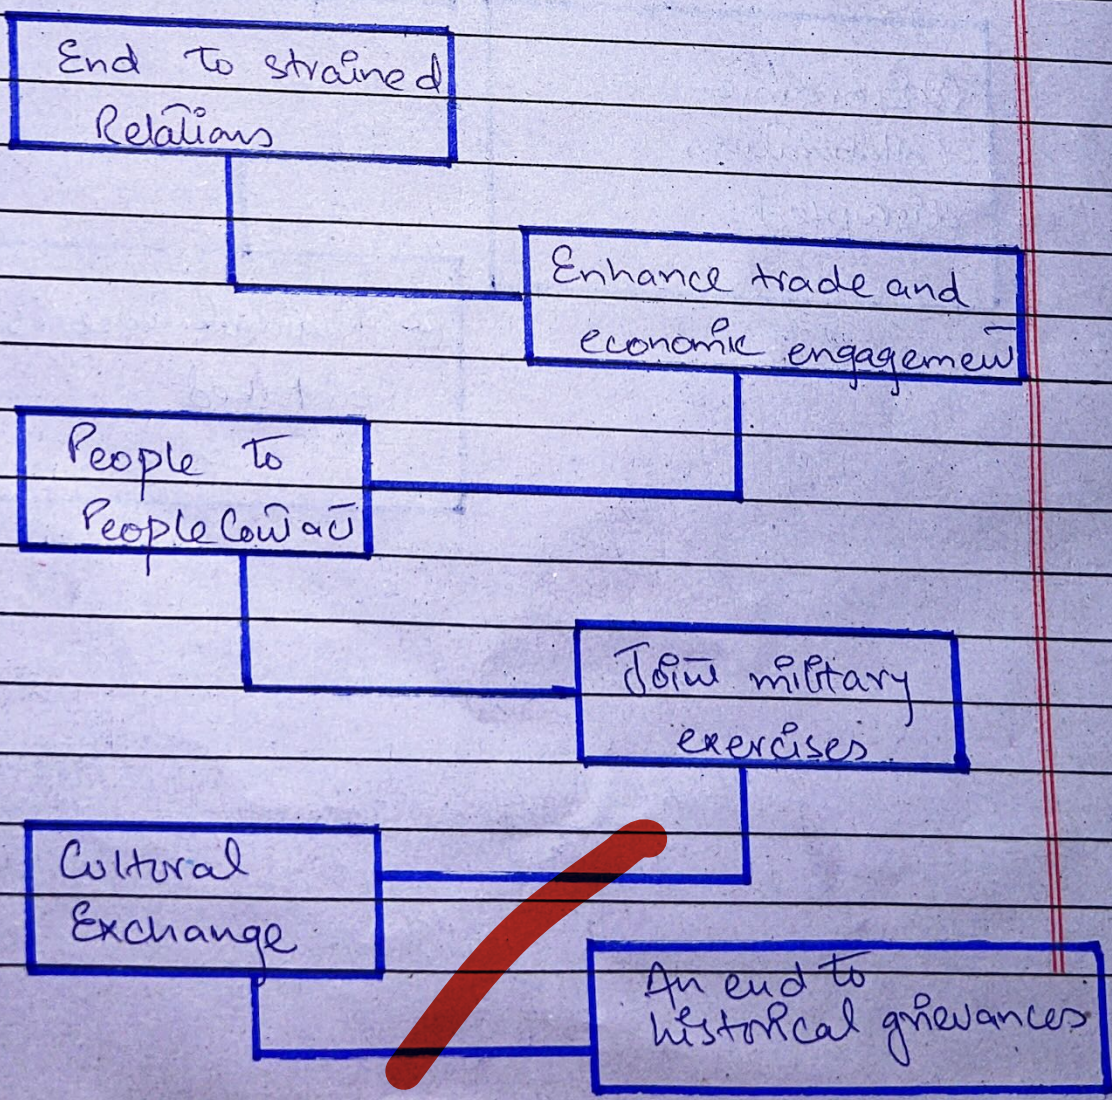 End to strained
Relations
Enhance trade and
economic engagement
People to
People Contact
Joint military
exercises.
Cultural
Exchange
An end to
historical grievances